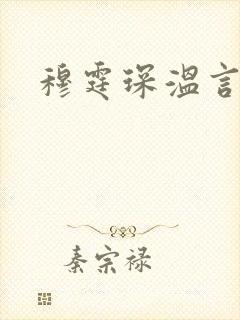 穆霆琛温言
秦宗禄